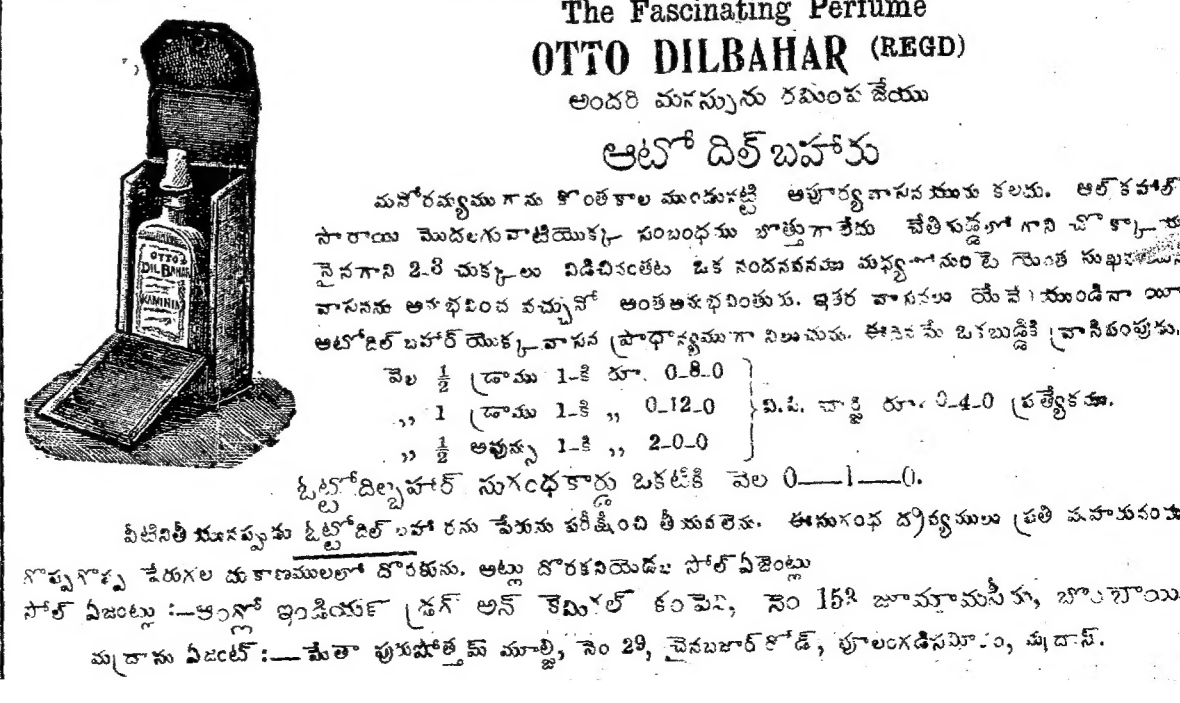 The Fascinating Perfume
OTTO DILBAHAR (REGD)
అందరి మనస్సును రమింప జేయు
ఆటో దిల్ బహారు
OTTO
DIL BAHAR
KAMINIA
మనోరమ్యము గాను కొంతకాల ముండునట్టి అపూర్వవాసన యును కలదు. ఆల్ కహాల్
సారాయి మొదలగువాటియొక్క సంబంధము బొత్తుగా లేదు చేతిగుడ్డలో గాని చొక్కా
నైనగాని 2-3 చుక్కలు విడిచినంతట ఒక నందనవనము మధ్య నుండి యెంత
వాసనను అనుభవించ వచ్చునో అంతఅనుభవింతురు. ఇతర వాసనలు యేవి యుండినా యీ
ఆటోదిల్ బహార్ యొక్క వాసన ప్రాధాన్యముగా నిలుచును. ఈదినమే ఒకబుడ్డికి వ్రాసిపంపుడు.
వెల ½ డ్రాము 1-కి రూ. 0-8-0
,, 1 డ్రాము 1-కి ,, 0-12-0
,, ½ అవున్సు 1-కి ,, 2-0-0
వి.పి. చార్జి రూ. 0-4-0 ప్రత్యేకము.
ఓట్టోదిల్బహార్ సుగంధకార్డు ఒకటికి వెల 0—1—0.
వీటినితీయునప్పుడు ఓట్టోదిల్ బహారను పేరును పరీక్షించి తీయవలెను. ఈసుగంధ ద్రివ్యములు ప్రతి
గొప్పగొప్ప పేరుగల దుకాణములలో దొరకును. అట్లు దొరకనియెడల సోల్ ఏజెంట్లు
సోల్ ఏజంట్లు :—ఆంగ్లో ఇండియన్ డ్రగ్ అన్ కెమికల్ కంపెని, నెం జుమ్మామసీదు, బొంబాయి
మద్రాసు ఏజంట్ :—మేతా పురుషోత్తమ్ మూల్జి, నెం 29, చైనబజార్ రోడ్, పూలంగడిసమీపం, మద్రాస్.